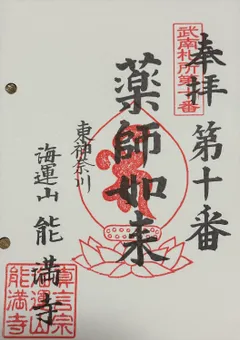 奉拝
第十番
武南札所第十番
薬師如来
東神奈川
海運山
能満寺
真言宗
海運山
能満寺